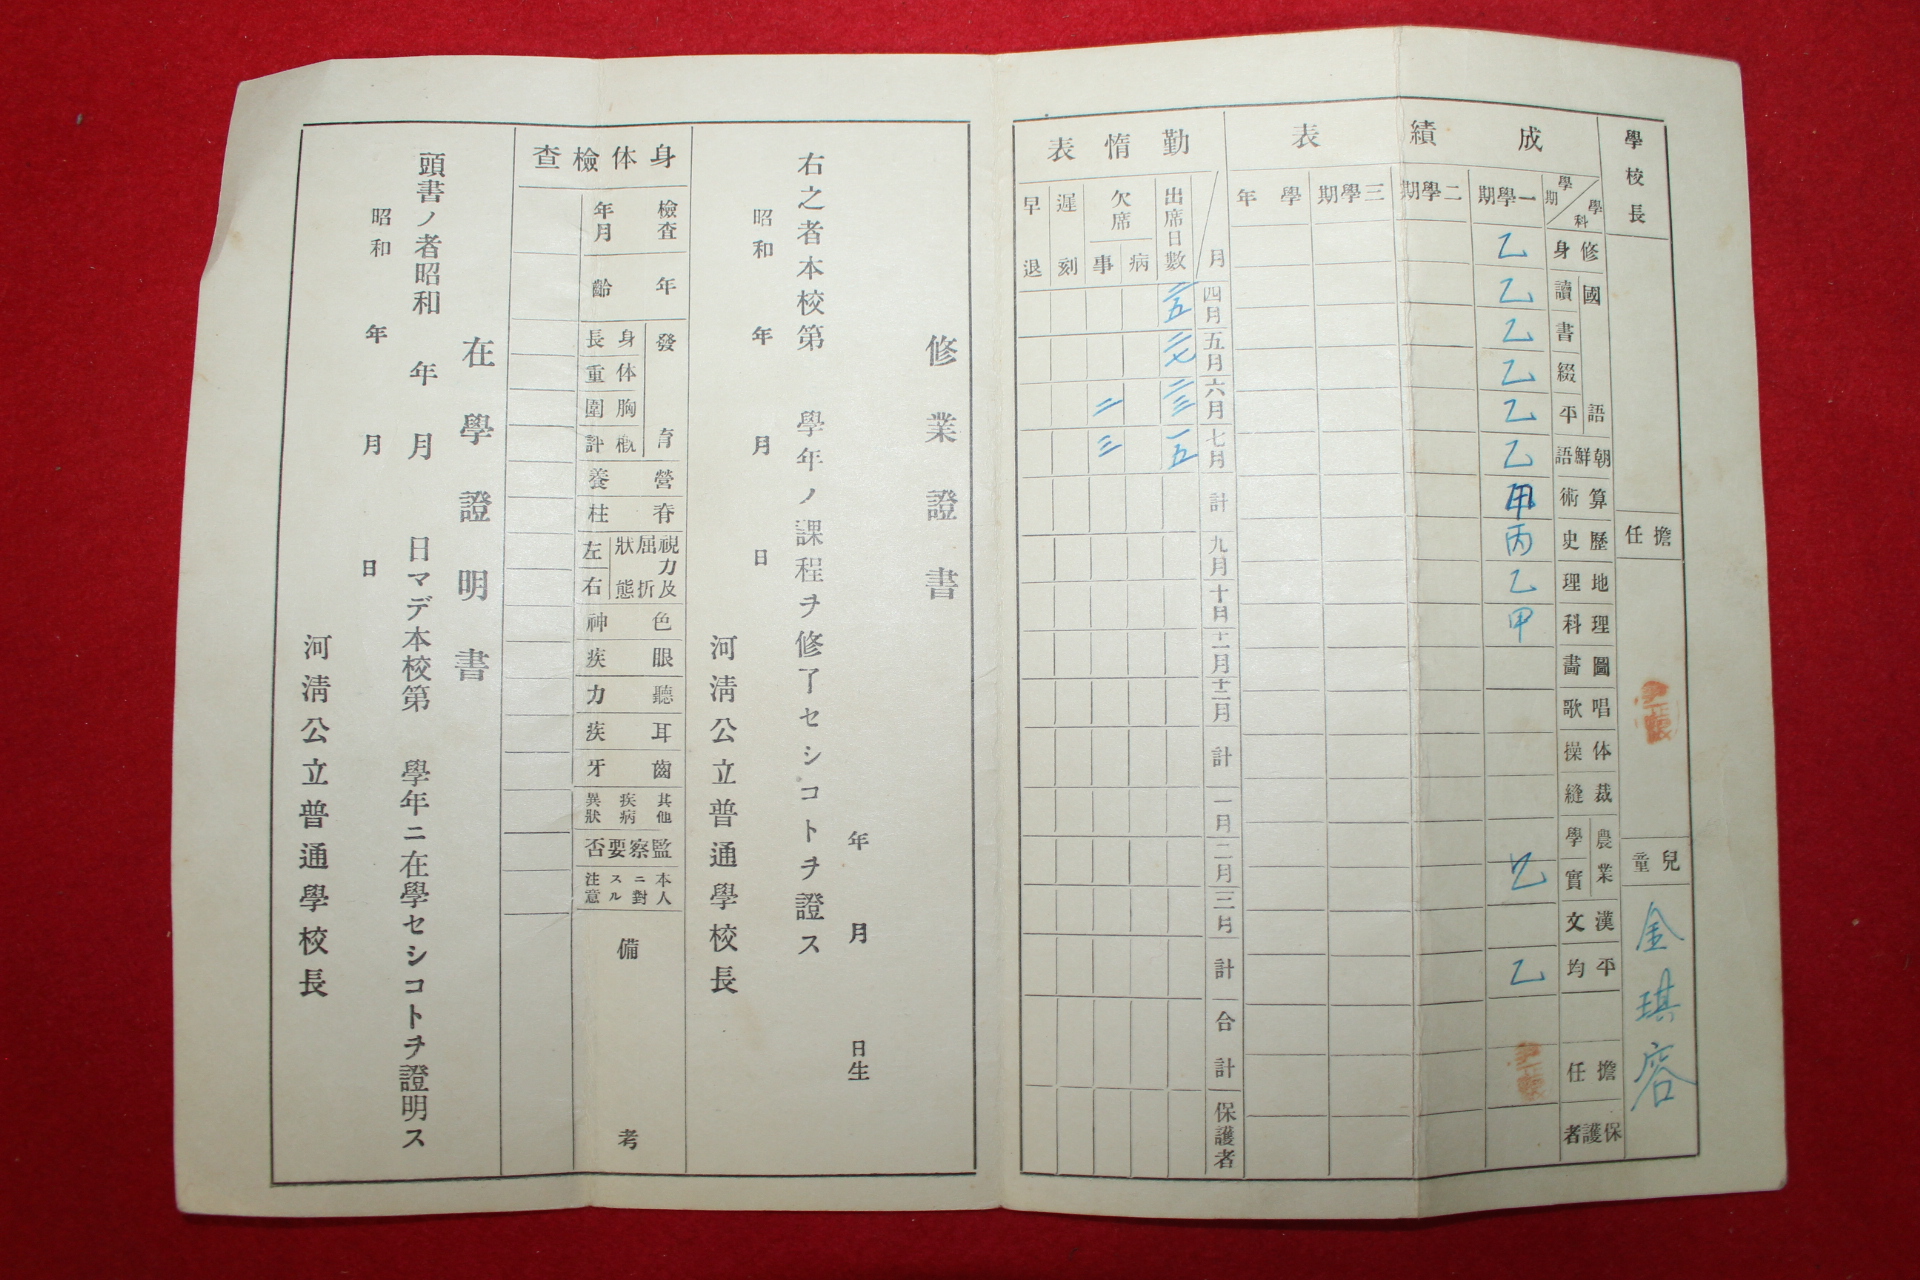 學校長
擔任
兒童
金琪容
成績表
學期
學科
一學期
二學期
三學期
學年
修身 乙
國語
讀 乙
書 乙
綴 乙
平 乙
朝鮮語 乙
算術 甲
歷史 丙
地理 乙
理科 甲
圖畵
唱歌
体操
裁縫
農業
學
實 乙
漢文
平均 乙
擔任
保護者
勤惰表
月
出席日數
欠席
病
事
遲刻
早退
四月 二五
五月 二七
六月 二三 二
七月 一五 三
計
九月
十月
十一月
十二月
計
一月
二月
三月
計
合計
保護者
修業證書
年 月 日生
右之者本校第 學年ノ課程ヲ修了セシコトヲ證ス
昭和 年 月 日
河淸公立普通學校長
身体檢查
檢査年月
年齡
發育
身長
体重
胸圍
概評
營養
脊柱
視力及屈折狀態
左
右
色神
眼疾
聽力
耳疾
齒牙
其他疾病異狀
監察要否
本人ニ對スル注意
備考
在學證明書
頭書ノ者昭和 年 月 日マデ本校第 學年ニ在學セシコトヲ證明ス
昭和 年 月 日
河淸公立普通學校長